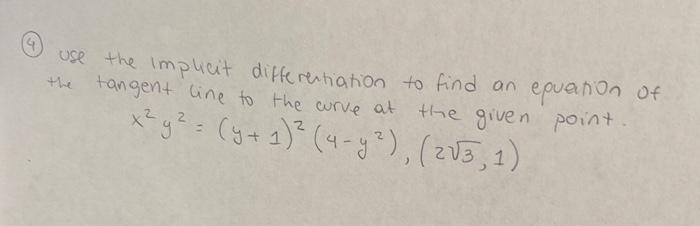 ④ use the implicit differentiation to find an equation of
the tangent line to the curve at the given point.
x² y² = (y+1)² (4-y²), (2√3, 1)